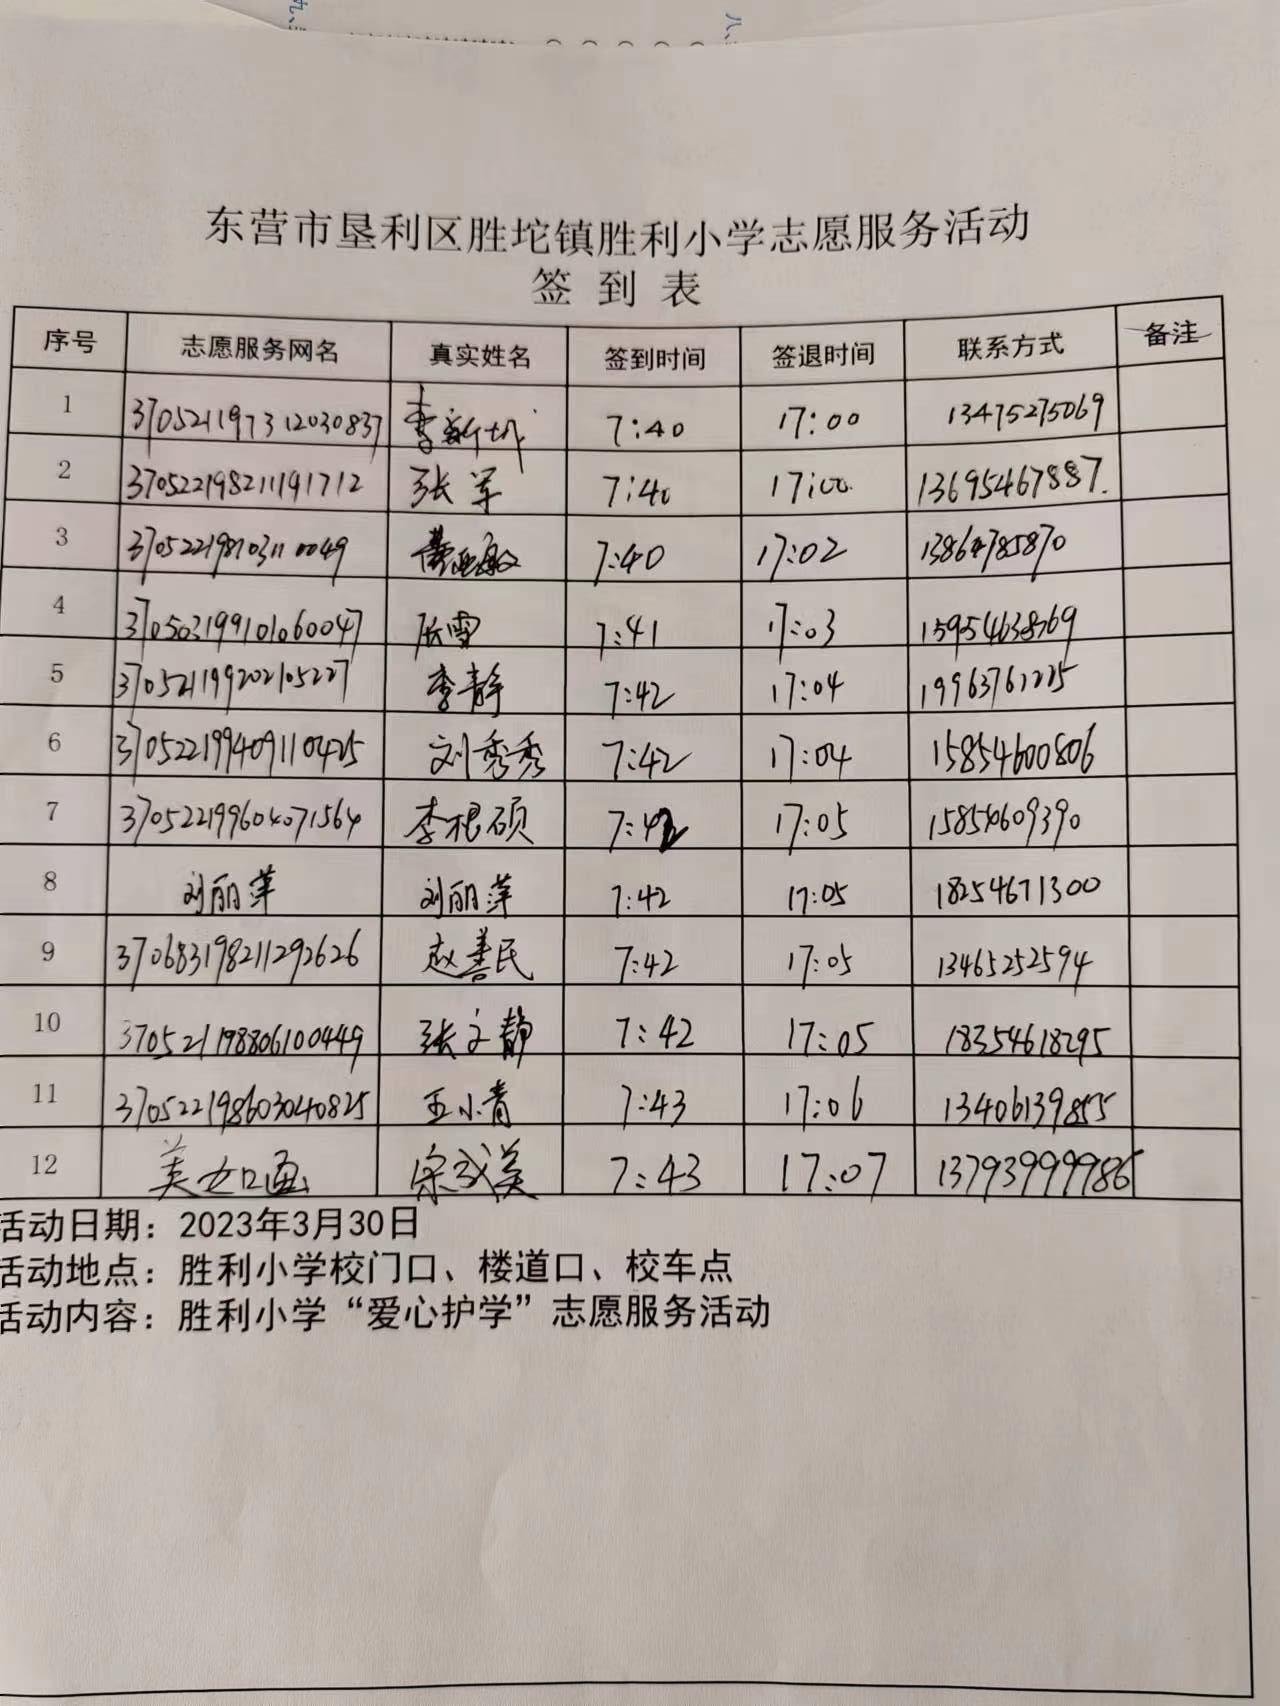 东营市垦利区胜坨镇胜利小学志愿服务活动
签 到 表
序号 志愿服务网名 真实姓名 签到时间 签退时间 联系方式 备注
1 370521197312030837 李新城 7:40 17:00 13475275069
2 370522198211191712 张军 7:40 17:00 13695467887.
3 370522198103110049 7:40 17:02 13864785870
4 370503199101060047 张雪 7:41 17:03 15954638769
5 370521199202105227 李静 7:42 17:04 19963761225
6 370522199409110425 刘秀秀 7:42 17:04 15854600806
7 370522199604071564 李根硕 7:42 17:05 15854609390
8 刘丽萍 刘丽萍 7:42 17:05 18254671300
9 370683198211292626 赵善民 7:42 17:05 13465252594
10 370521198806100449 张文静 7:42 17:05 18354618295
11 370522198603040825 王小青 7:43 17:06 13406139855
12 美女口画 宗成美 7:43 17:07 13793999986
活动日期：2023年3月30日
活动地点：胜利小学校门口、楼道口、校车点
活动内容：胜利小学“爱心护学”志愿服务活动